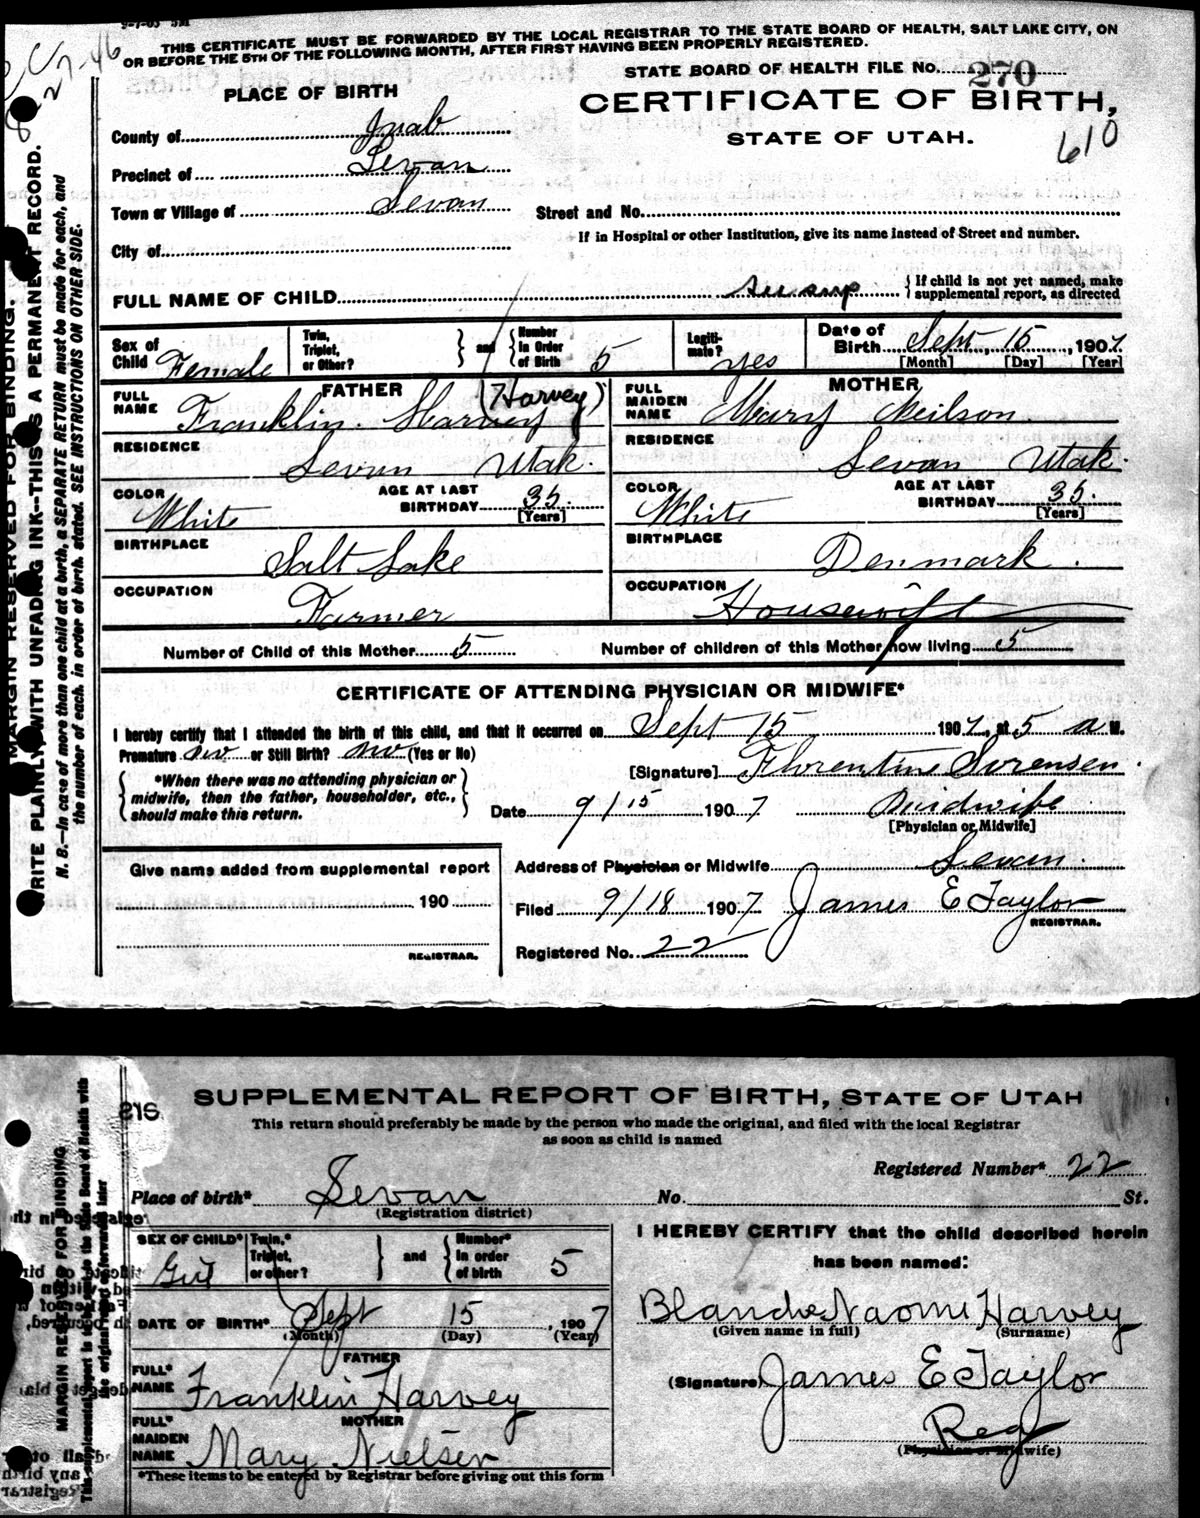 THIS CERTIFICATE MUST BE FORWARDED BY THE LOCAL REGISTRAR TO THE STATE BOARD OF HEALTH, SALT LAKE CITY, ON
OR BEFORE THE 5TH OF THE FOLLOWING MONTH, AFTER FIRST HAVING BEEN PROPERLY REGISTERED.
STATE BOARD OF HEALTH FILE No. 270
PLACE OF BIRTH
CERTIFICATE OF BIRTH,
STATE OF UTAH.
610
County of Juab
Precinct of Levan
Town or Village of Levan
Street and No.
If in Hospital or other Institution, give its name instead of Street and number.
City of
FULL NAME OF CHILD See sup
{If child is not yet named, make
supplemental report, as directed
Sex of Child Female
Twin, Triplet, or Other?
and
Number In Order of Birth 5
Legiti-mate? yes
Date of Birth Sept 15, 1907
[Month] [Day] [Year]
FATHER
FULL NAME Franklin Harvey (Harvey)
MOTHER
FULL MAIDEN NAME Mary Neilson
RESIDENCE Levan Utah.
RESIDENCE Levan Utah.
COLOR White
AGE AT LAST BIRTHDAY 35. [Years]
COLOR White
AGE AT LAST BIRTHDAY 35. [Years]
BIRTHPLACE Salt Lake
BIRTHPLACE Denmark.
OCCUPATION Farmer
OCCUPATION Housewife
Number of Child of this Mother 5
Number of children of this Mother now living 5
CERTIFICATE OF ATTENDING PHYSICIAN OR MIDWIFE*
I hereby certify that I attended the birth of this child, and that it occurred on Sept 15 1907, at 5 a M.
Premature no or Still Birth? no (Yes or No)
{*When there was no attending physician or
midwife, then the father, householder, etc.,
should make this return.}
[Signature] Florentine Sorensen.
Date 9/15 1907
Midwife
[Physician or Midwife]
Give name added from supplemental report
190
REGISTRAR.
Address of Physician or Midwife Levan.
Filed 9/18 1907 James E Taylor
REGISTRAR.
Registered No. 22
MARGIN RESERVED FOR BINDING.
WRITE PLAINLY WITH UNFADING INK—THIS IS A PERMANENT RECORD.
N. B.—In case of more than one child at a birth, a SEPARATE RETURN must be made for each, and
the number of each, in order of birth, stated. SEE INSTRUCTIONS ON OTHER SIDE.
SUPPLEMENTAL REPORT OF BIRTH, STATE OF UTAH
This return should preferably be made by the person who made the original, and filed with the local Registrar
as soon as child is named
Registered Number* 22
Place of birth* Levan No. St.
(Registration district)
SEX OF CHILD* Girl
Twin,* Triplet, or other?
and
Number* In order of birth 5
I HEREBY CERTIFY that the child described herein
has been named:
DATE OF BIRTH* Sept 15, 1907
(Month) (Day) (Year)
Blanche Naomi Harvey
(Given name in full) (Surname)
FATHER
FULL* NAME Franklin Harvey
(Signature) James E Taylor
MOTHER
FULL* MAIDEN NAME Mary Nielsen
Reg
(Physician or Midwife)
*These items to be entered by Registrar before giving out this form
MARGIN RESERVED FOR BINDING